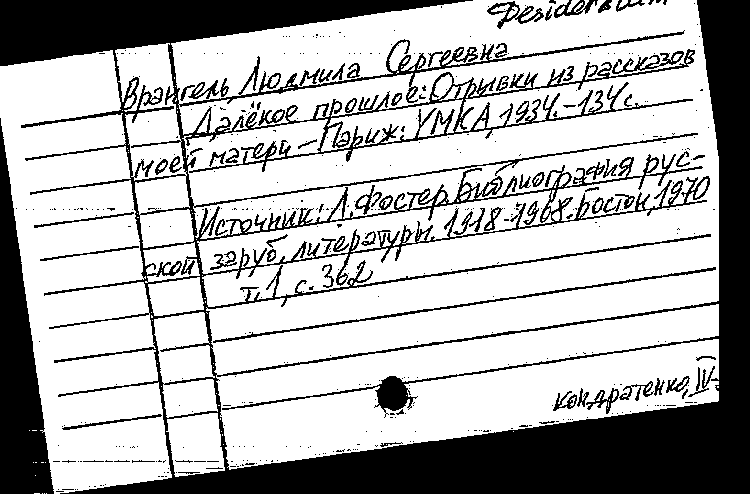 Desideratum
Врангель, Людмила Сергеевна
Далёкое прошлое: Отрывки из рассказов
моей матери – Париж: YMKA, 1934. – 134 с.
Источник: Л. Фостер. Библиография рус-
ской заруб. литературы. 1918-1968. Бостон, 1970
т. 1, с. 362
Кондратенко, IV-